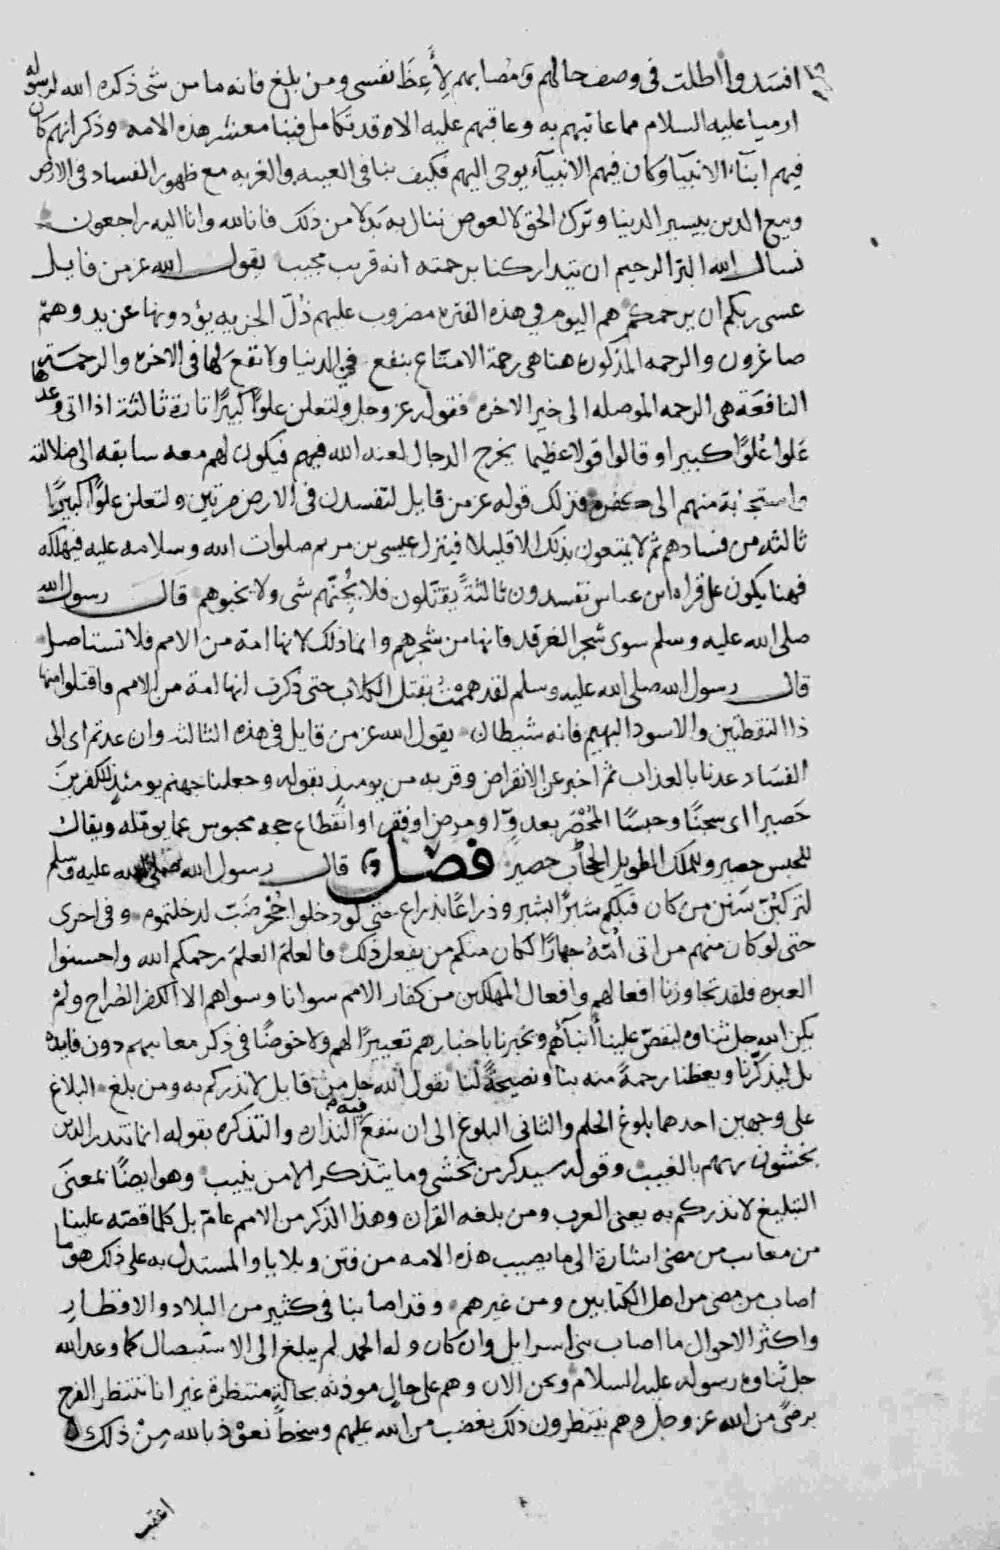 افسدوا اطلت فى وصف حالهم ومصابهم لأعظ نفسى ومن بلغ فانه ما من شى ذكره الله لرسوله
ارميا عليه السلام مما عاتبهم به وعاقبهم عليه الا وقد تكامل فينا معشر هذه الامه وذكر انهم كان
فيهم ابناء الانبيا وكان فيهم الانبياء يوحى اليهم فكيف بنا فى الغيبه والغربه مع ظهور الفساد فى الارض
وبيع الدين بيسير الدنيا وترك الحق لا لعوض ننال به بدلا من ذلك فانا لله وانا اليه راجعون
نسال الله البر الرحيم ان يتداركنا برحمته انه قريب مجيب يقول الله عز من قايل
عسى ربكم ان يرحمكم هم اليوم فى هذه الفتره مضروب عليهم ذل الجزيه يؤدونها عن يد وهم
صاغرون والرحمه المذكوره هنا هى رحمة الامتاع ينفع فى الدنيا ولا تقع لها فى الاخره والرحمة
النافعة هى الرحمه الموصله الى خير الاخره فقوله عز وجل ولتعلن علوا كبيرا تارة ثالثة اذا اتى وعدها
علوا علوا كبيرا وقالوا قولا عظيما يخرج الدجال لعنه الله فيهم فيكون لهم معه سابقه الى ضلالته
منهم الى كفره فذلك قوله عز من قايل لتفسدن فى الارض مرتين ولتعلن علوا كبيرا
ثالثه من فسادهم ثم لا يمتعون بذلك الا قليلا فينزل عيسى بن مريم صلوات الله وسلامه عليه فيهلكه
فهنا يكون على قراه ابن عباس تفسدون ثالثة يقتلون فلا يجنهم شى ولا يخبوهم قال رسول الله
صلى الله عليه وسلم سوى شجر الغرقد فانها من شجرهم وانما ذلك لانها امة من الامم فلا تستاصل
قال رسول الله صلى الله عليه وسلم لقد هممت بقتل الكلاب حتى ذكرت انها امة من الامم واقتلوا منها
ذا النقطتين والاسود البهيم فانه شيطان يقول الله عز من قايل فى هذه الثالثه وان عدتم اى الى
الفساد عدنا بالعذاب ثم اخبر عن الانقراض وقربه من يوميذ بقوله وجعلنا جهنم يومئذ للكفرين
حصيرا اى سجنا وحبسا المحصر بعدو او مرض او فقر او انقطاع حجه محبوس عما يومله ويقال
للحبس حصير وللملك الطويل الحجاب حصير فصل قال رسول الله صلى الله عليه وسلم
لتركبن سنن من كان قبلكم شبرا بشبر وذراعا بذراع حتى لو دخلوا جحر ضب لدخلتموه وفى اخرى
حتى لو كان منهم من اتى امه جهارا لكان منكم من يفعل ذلك فالعلم العلم رحمكم الله واحسنوا
العبره فلقد تجاوزنا افعالهم وافعال المهلكين من كفار الامم سوانا وسواهم الا الكفر الصراح ولم
يكن الله جل ثناوه ليقص علينا أنبآهم ويخبرنا باخبارهم تعييرا لهم ولا خوضا فى ذكر معايبهم دون فايده
بل ليذكرنا ويعظنا رحمة منه بنا ونصيحة لنا يقول الله جل من قايل لانذركم به ومن بلغ البلاغ
على وجهين احدهما بلوغ الحلم والثانى البلوغ الى ان تنفع فيه النذاره والتذكره بقوله انما تنذر الذين
يخشون ربهم بالغيب وقوله سيذكر من يخشى وما يتذكر الا من ينيب وهو ايضا بمعنى
التبليغ لانذركم به يعنى العرب ومن بلغه القران وهذا الذكر من الامم عام بل كلما قصه علينا
من معايب من مضى اشارة الى ما يصيب هذه الامه من فتن وبلايا والمستدل به على ذلك هو ما
اصاب من مضى من اهل الكتابين ومن غيرهم وقد اصابنا فى كثير من البلاد والاقطار
واكثر الاحوال ما اصاب بنى اسرايل وان كان وله الحمد لم يبلغ الى الاستيصال كما وعد الله
جل ثناوه رسوله عليه السلام ونحن الان وهم على حال موذنه بحالة منتظرة غير انا ننتظر الفرج
برضى من الله عز وجل وهم ينتظرون ذلك بغضب من الله عليهم وسخط نعوذ بالله من ذلك
اعقب